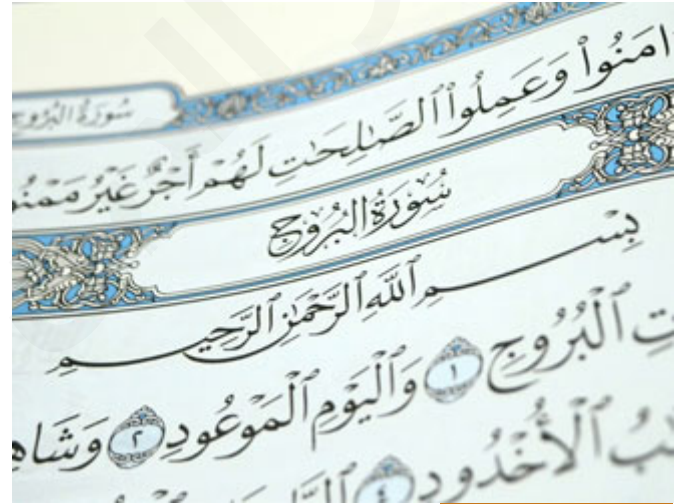 سُورَةُ البُرُوج
امَنُوا۟ وَعَمِلُوا۟ ٱلصَّـٰلِحَـٰتِ لَهُمْ أَجْرٌ غَيْرُ مَمْنُو
سُورَةُ البُرُوج
بِسْمِ ٱللَّهِ ٱلرَّحْمَـٰنِ ٱلرَّحِيمِ
تِ ٱلْبُرُوجِ ١ وَٱلْيَوْمِ ٱلْمَوْعُودِ ٢ وَشَاهِ
بُ ٱلْأُخْدُودِ ٤